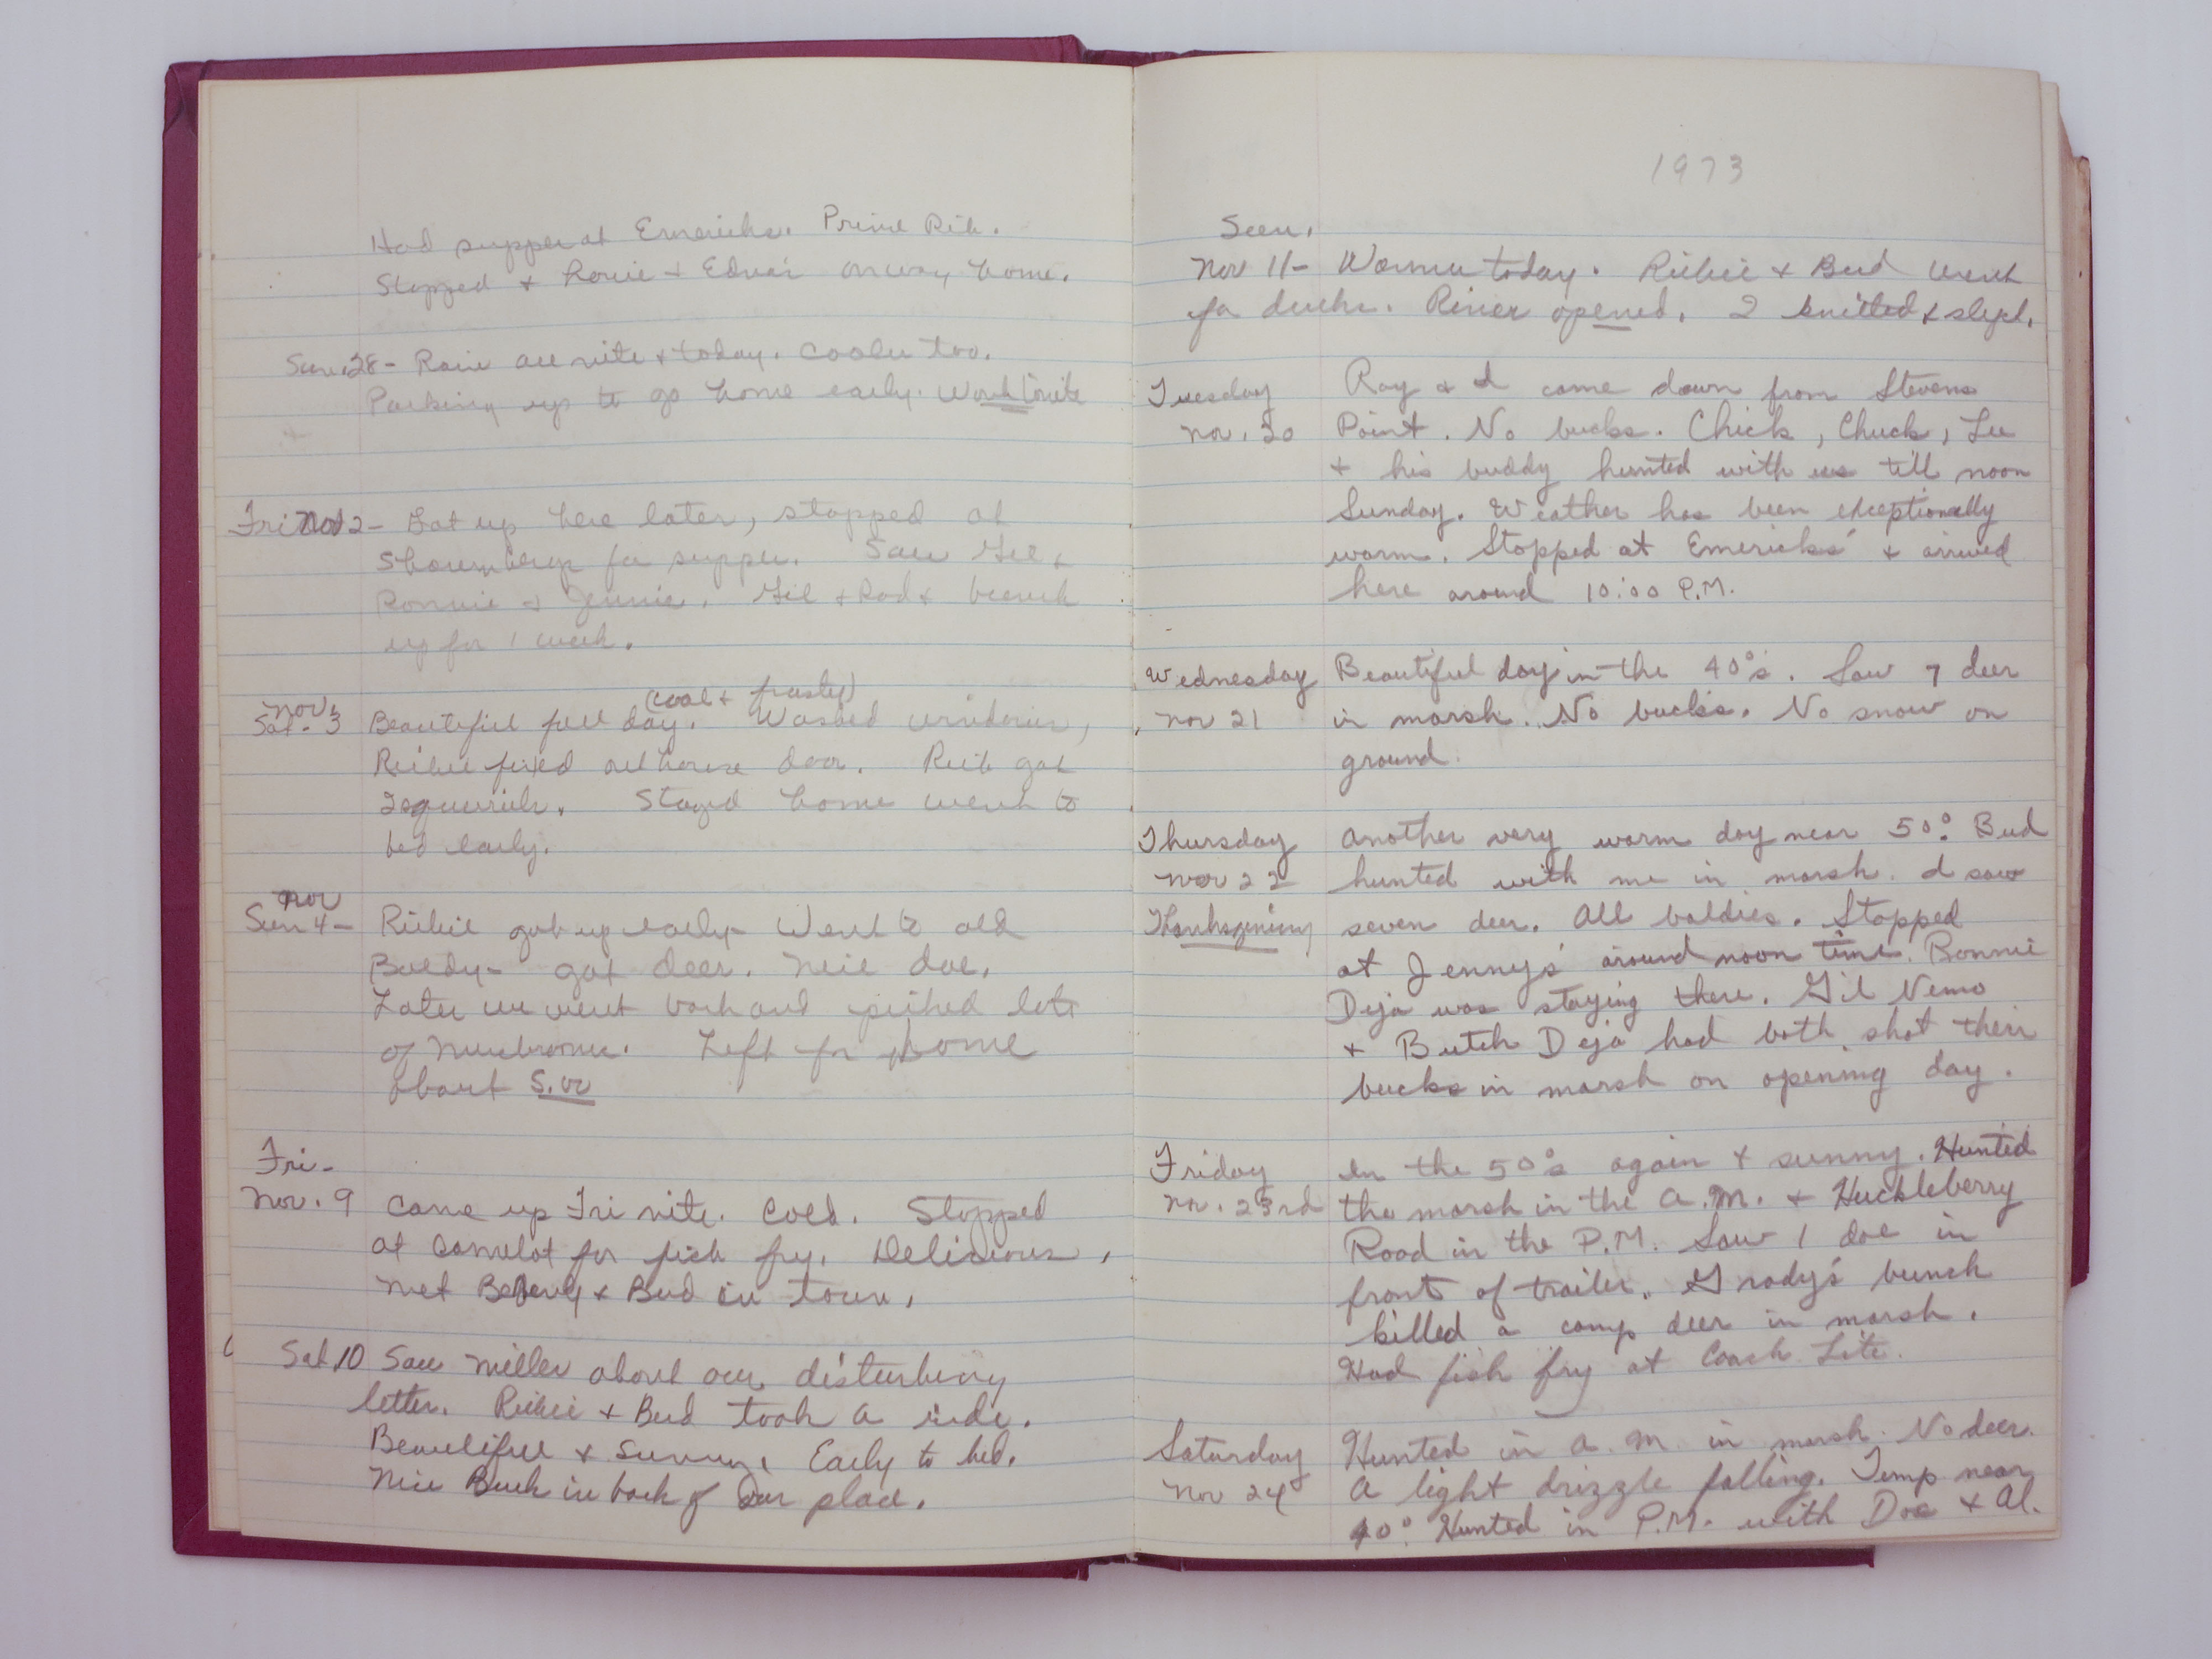 Had supper at Emerichs. Prime Rib.
Stopped & Louie + Edna's on way home.
Sun. 28 - Rain all nite & today. Cooler too.
Packing up to go home early. Work tonite
Fri Nov 2 - Got up here later, stopped at
for supper. Saw Gil &
Ronnie & Jennie. Gil & Rod & bunch
up for 1 week.
(cool & frosty)
Nov.
Sat. 3 Beautiful fall day. Washed windows,
Richie fixed outhouse door. Rich got
2 squirrels. Stayed home went to
bed early.
Nov
Sun 4 - Richie got up early - Went to old
Baldy - got deer. Nice doe.
Later we went back and picked lots
of mushrooms. Left for home
about 5.00
Fri -
Nov. 9 Came up Fri nite. Cold. Stopped
at Camelot for fish fry. Delicious,
met Beverly & Bud in town.
Sat. 10 Saw Miller about our disturbing
letter. Richie & Bud took a ride.
Beautiful & Sunny. Early to bed.
Nice Buck in back of our place.
1973
Seen.
Nov 11 - Warmer today. Richie & Bud went
for ducks. River opened. I knitted & slept.
Tuesday Ray & I came down from Stevens
Nov. 20 Point. No bucks. Chick, Chuck, Lee
+ his buddy hunted with us till noon
Sunday. Weather has been exceptionally
warm. Stopped at Emericks' & arrived
here around 10:00 P.M.
Wednesday Beautiful day in the 40°s. Saw 7 deer
Nov 21 in marsh. No bucks. No snow on
ground.
Thursday Another very warm day near 50°. Bud
Nov 22 hunted with me in marsh. I saw
Thanksgiving seven deer. All baldies. Stopped
at Jenny's around noon time. Bonnie
Deja was staying there. Gil Nemo
+ Butch Deja had both shot their
bucks in marsh on opening day.
Friday In the 50°s again & sunny. Hunted
Nov. 23rd the marsh in the A.M. & Huckleberry
Road in the P.M. Saw 1 doe in
front of trailer. Grody's bunch
killed a camp deer in marsh.
Had fish fry at Coach Lite.
Saturday Hunted in A.M. in marsh. No deer.
Nov 24 A light drizzle falling. Temp near
40°. Hunted in P.M. with Doc & Al.